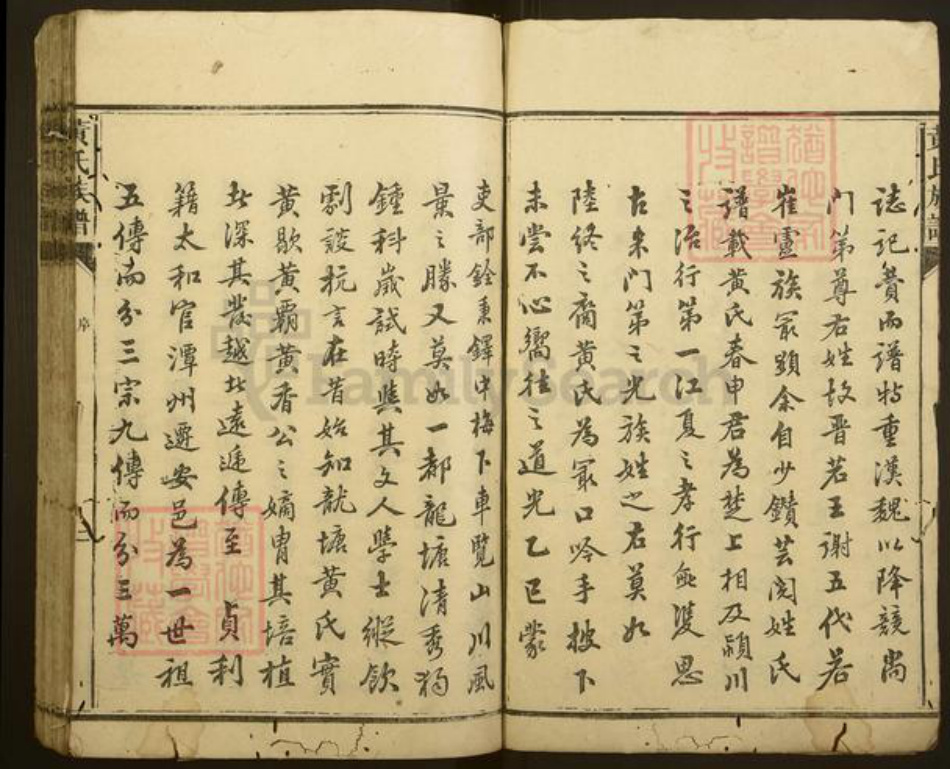 黃氏族譜
誌記貴而譜特重漢魏以降競尚
門第尊右姓故晉若王謝五代若
崔盧族最顯余自少鑽芸閱姓氏
譜載黃氏春申君為楚上相及潁川
之治行第一江夏之孝行無雙思
古來門第之光族姓之右莫如
陸終之裔黃氏為最口吟手披下
未嘗不心嚮往之道光乙巳蒙
吏部銓秉鐸中梅下車覽山川風
景之勝又莫如一都龍塘清秀獨
鍾科歲試時與其文人學士縱飲
劇談抗言在昔始知龍塘黃氏實
黃歇黃霸黃香公之嫡胄其培植
者深其發越者遠遞傳至 貞利
籍太和官潭州遷安邑為一世祖
五傳而分三宗九傳而分三萬
黃氏族譜
序
FamilySearch